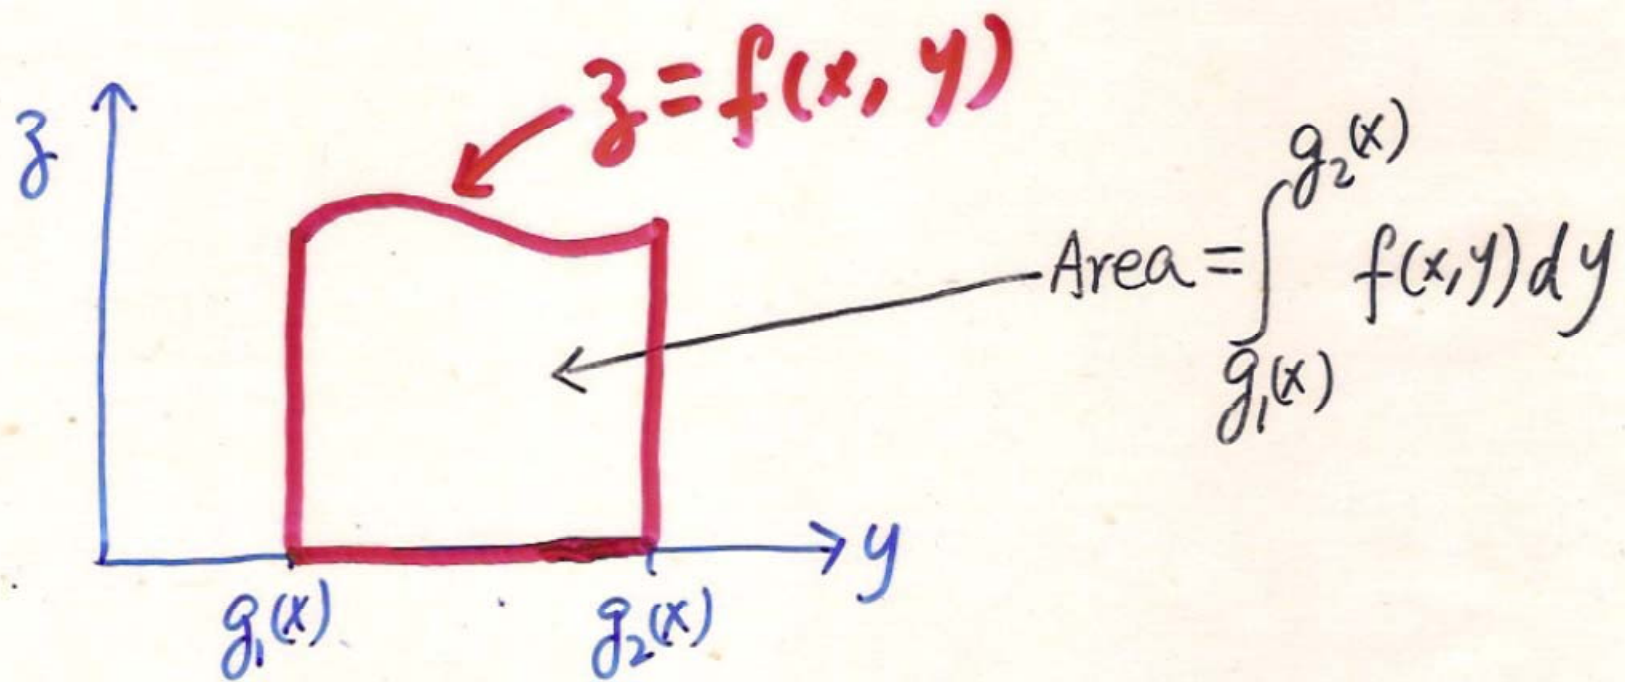 z = f(x, y)
z
Area = ∫_{g₁(x)}^{g₂(x)} f(x,y) dy
y
g₁(x) g₂(x)